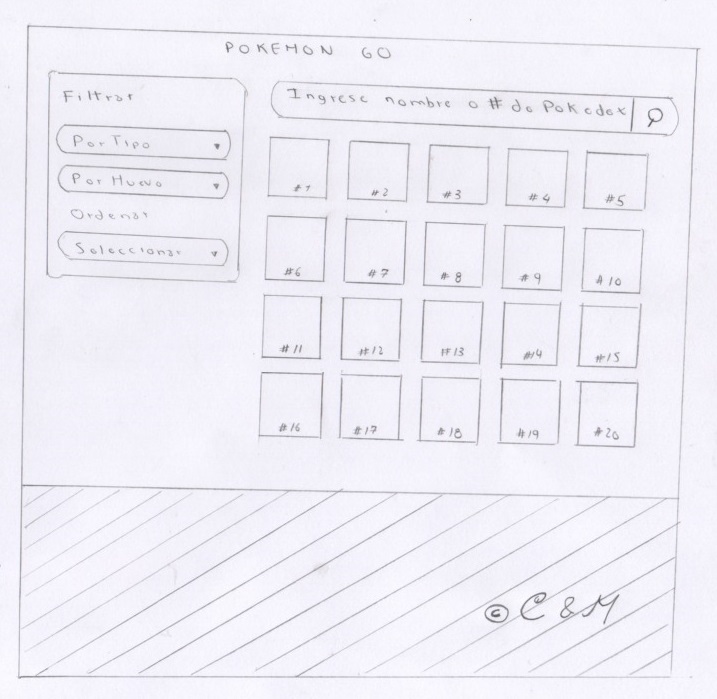 POKEMON GO
Filtrar
Por Tipo
Por Huevo
Ordenar
Seleccionar
Ingrese nombre o # de Pokedex
#1 #2 #3 #4 #5
#6 #7 #8 #9 #10
#11 #12 #13 #14 #15
#16 #17 #18 #19 #20
© C & M